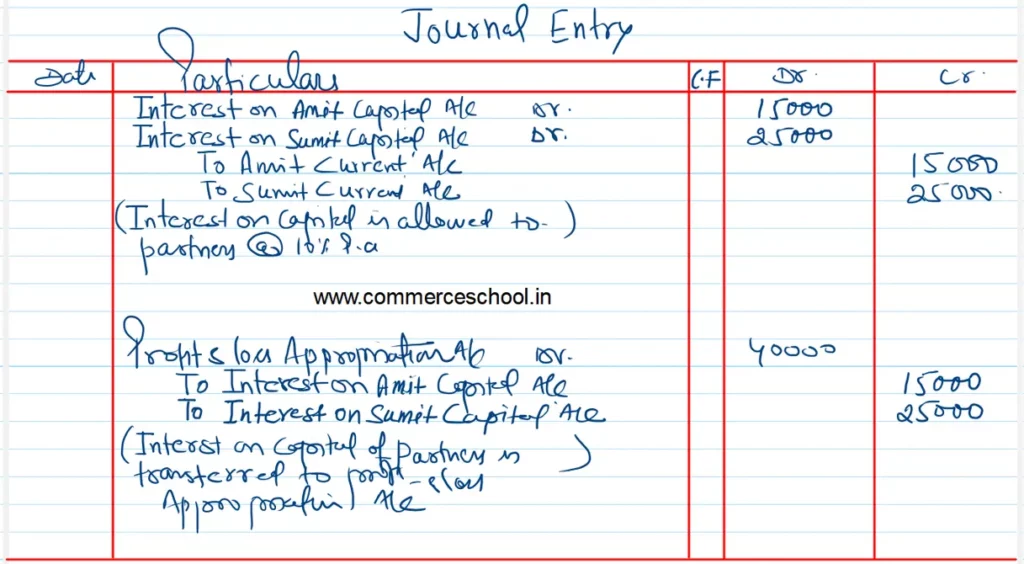 Journal Entry
Date Particulars C.F Dr. Cr.
Interest on Amit Capital A/c Dr. 15000
Interest on Sumit Capital A/c Dr. 25000
To Amit Current A/c 15000
To Sumit Current A/c 25000.
(Interest on Capital is allowed to )
partners @ 10% P.a
www.commerceschool.in
Profit & loss Appropriation A/c Dr. 40000
To Interest on Amit Capital A/c 15000
To Interest on Sumit Capital A/c 25000
(Interest on Capital of Partners is )
transferred to profit & loss
Appropriation A/c